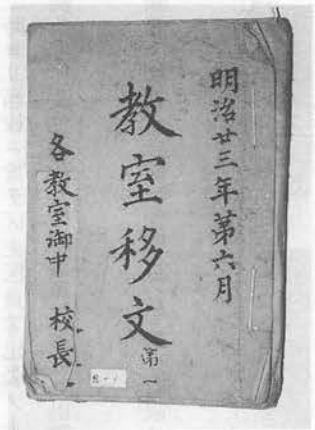 明治廿三年第六月
教室移文 第一
各教室御中 校長